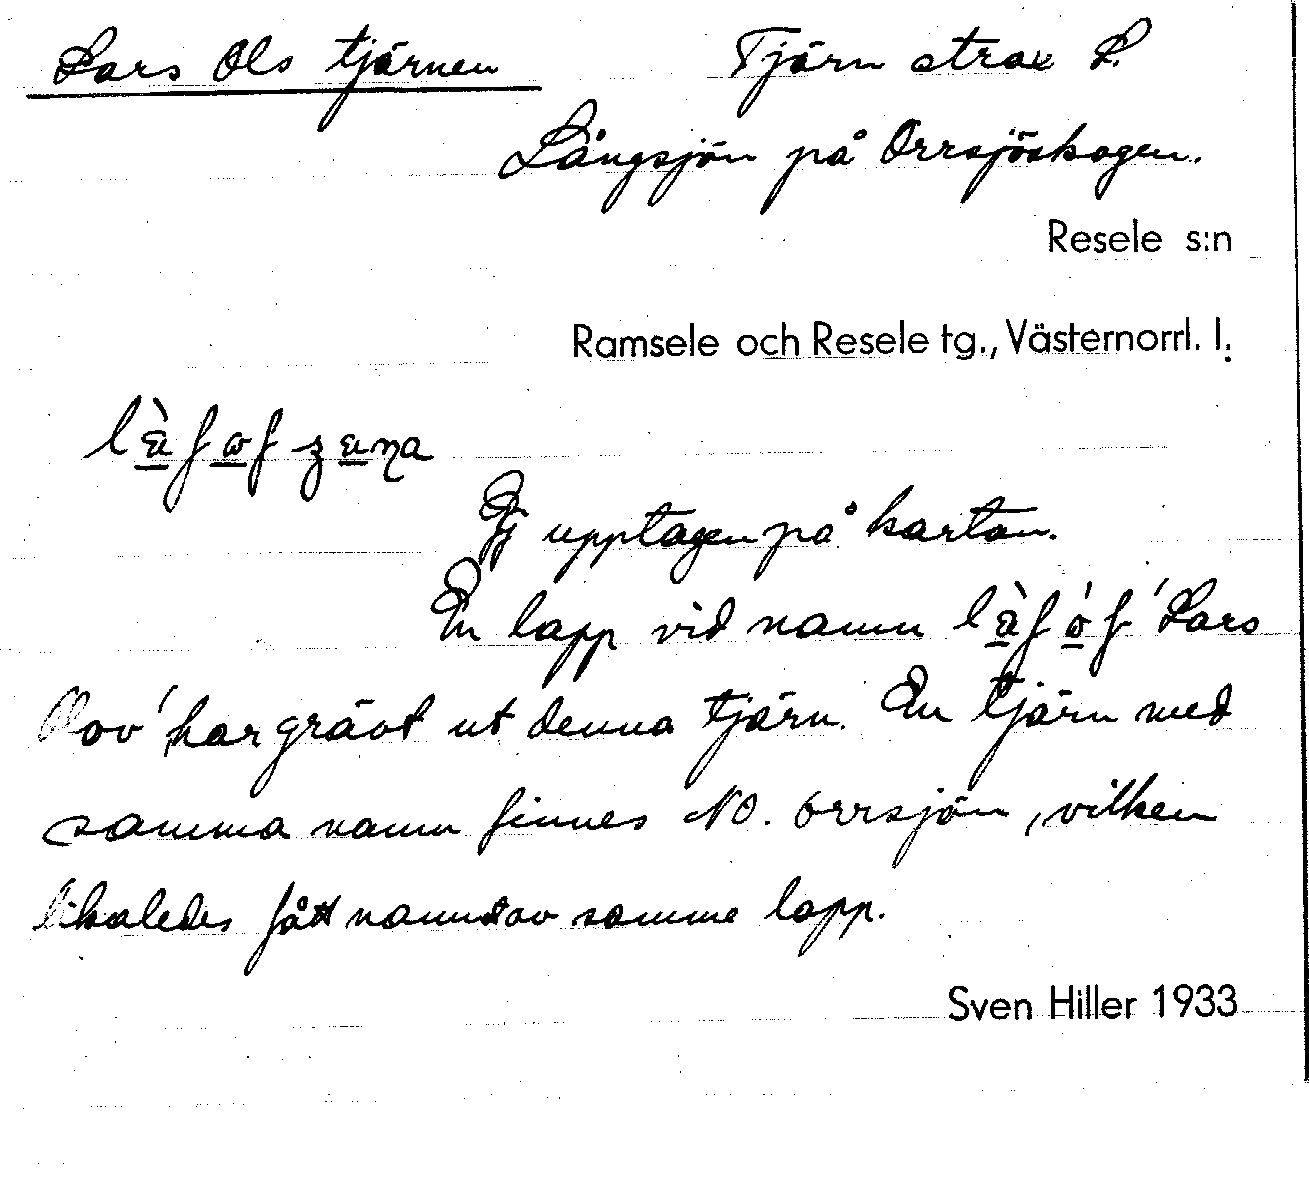 Lars Ols tjärnen Tjärn strax S.
Långsjön på Orrsjöskogen.
Resele s:n
Ramsele och Resele tg., Västernorrl. l.
Ej upptagen på kartan.
En lapp vid namn 'Lars
Olov' har grävt ut denna tjärn. En tjärn med
samma namn finnes NO. Orrsjön, vilken
likaledes fått namn av samme lapp.
Sven Hiller 1933